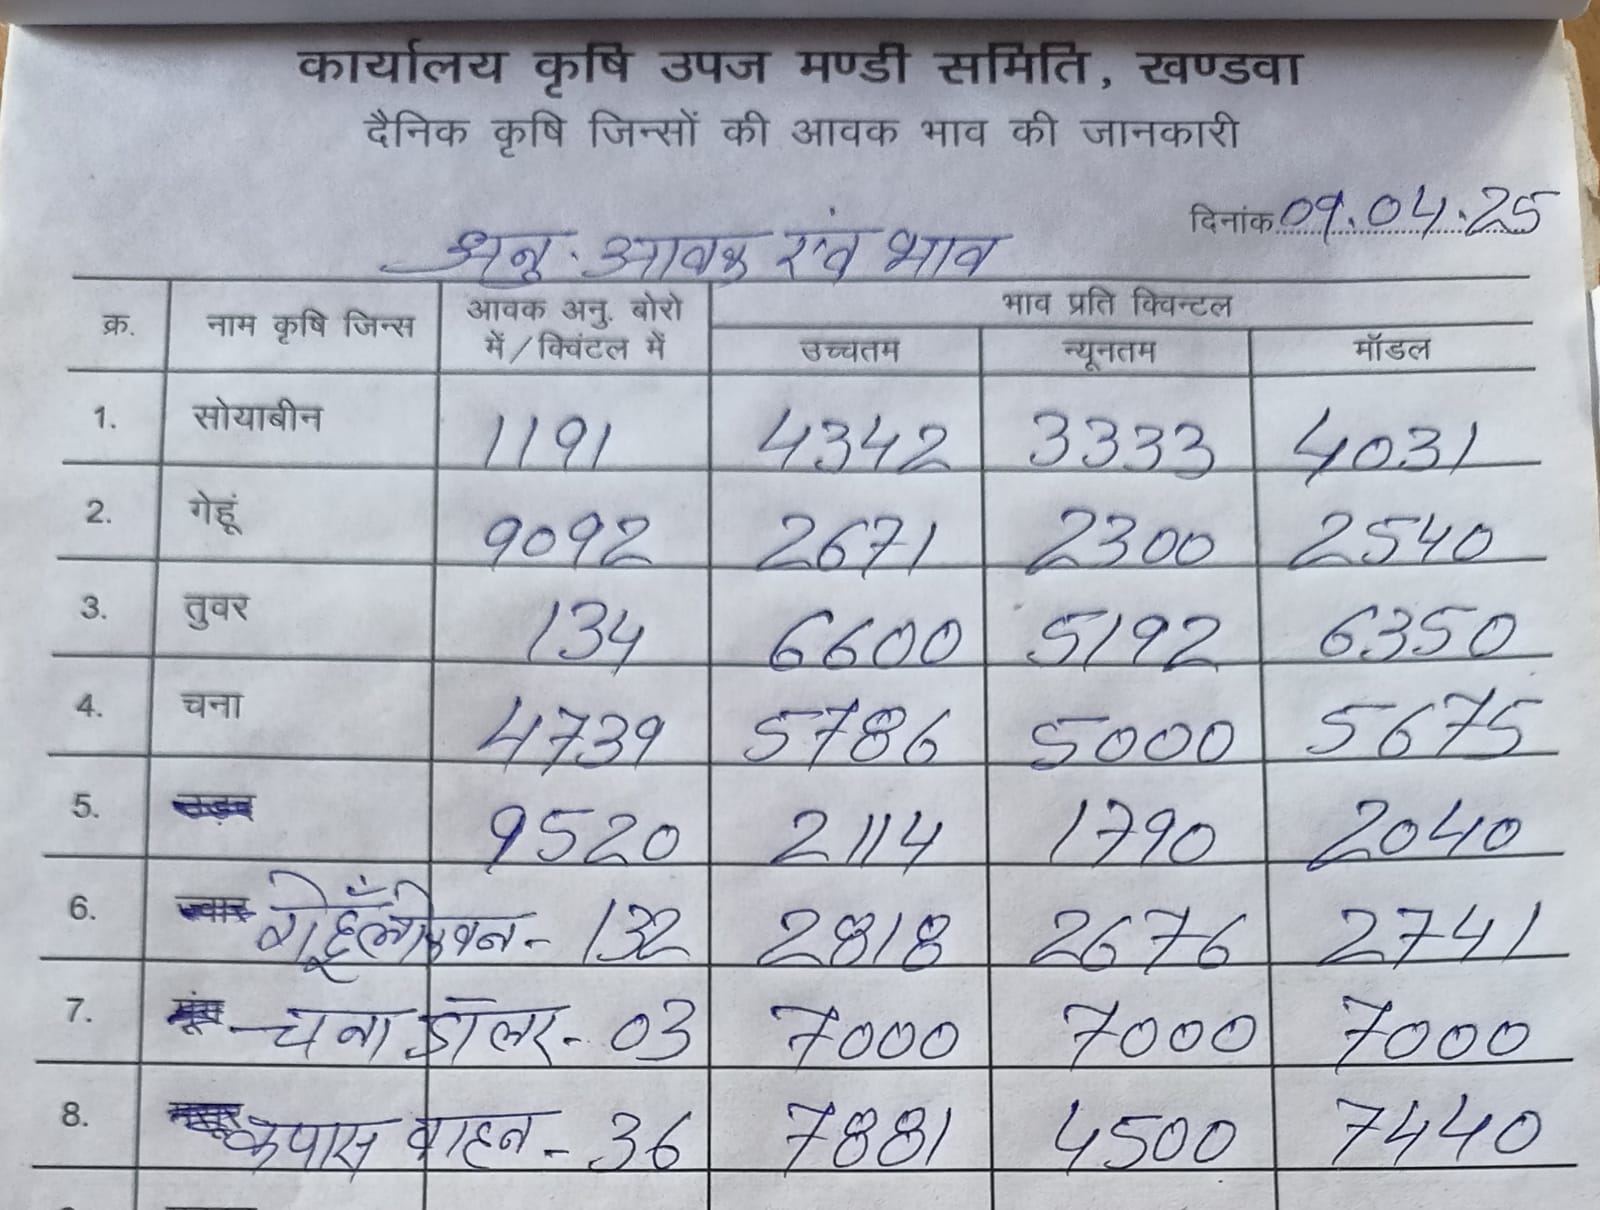 कार्यालय कृषि उपज मण्डी समिति, खण्डवा
दैनिक कृषि जिन्सों की आवक भाव की जानकारी
दिनांक 09.04.25
अनु. आवक एंव भाव
क्र. नाम कृषि जिन्स आवक अनु. बोरो में/क्विंटल में भाव प्रति क्विन्टल
उच्चतम न्यूनतम मॉडल
1. सोयाबीन 1191 4342 3333 4031
2. गेहूं 9092 2671 2300 2540
3. तुवर 134 6600 5192 6350
4. चना 4739 5786 5000 5675
5. 9520 2114 1790 2040
6. ज्वार 132 2818 2676 2741
7. मूंग चना डॉलर - 03 7000 7000 7000
8. मसूर कपास वाहन - 36 7881 4500 7440